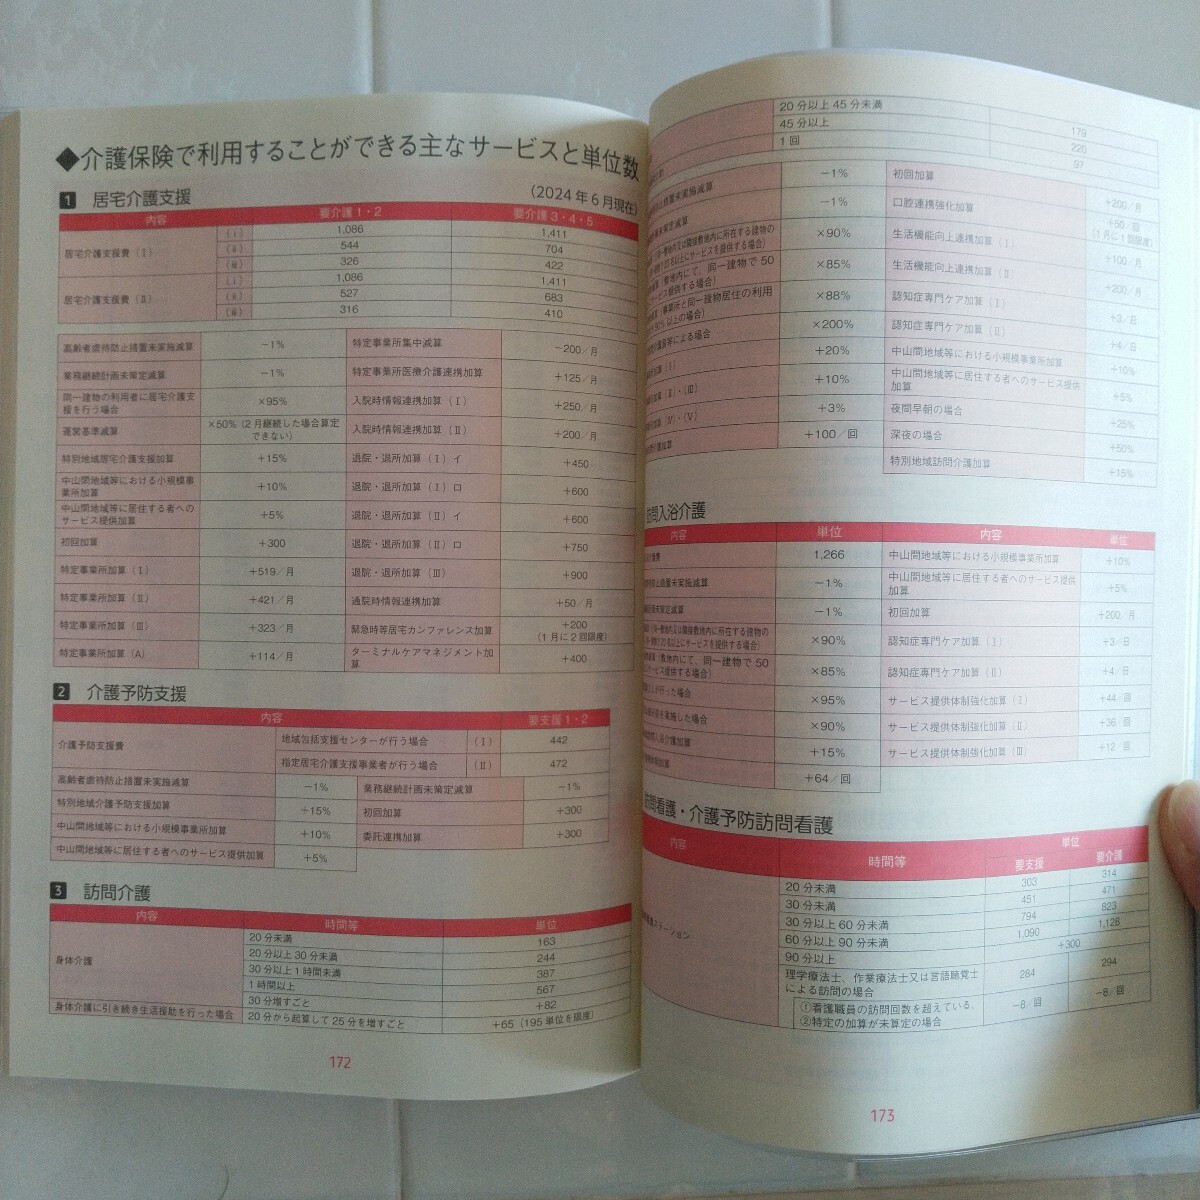 ◆介護保険で利用することができる主なサービスと単位数
(2024年6月現在)
1 居宅介護支援
内容 要介護1・2 要介護3・4・5
居宅介護支援費(Ⅰ) (ⅰ) 1,086 1,411
(ⅱ) 544 704
(ⅲ) 326 422
居宅介護支援費(Ⅱ) (ⅰ) 1,086 1,411
(ⅱ) 527 683
(ⅲ) 316 410
高齢者虐待防止措置未実施減算 −1% 特定事業所集中減算 −200/月
業務継続計画未策定減算 −1% 特定事業所医療介護連携加算 +125/月
同一建物の利用者に居宅介護支
援を行う場合 ×95% 入院時情報連携加算(Ⅰ) +250/月
運営基準減算 ×50%(2月継続した場合算定
できない) 入院時情報連携加算(Ⅱ) +200/月
特別地域居宅介護支援加算 +15% 退院・退所加算(Ⅰ)イ +450
中山間地域等における小規模事
業所加算 +10% 退院・退所加算(Ⅰ)ロ +600
中山間地域等に居住する者への
サービス提供加算 +5% 退院・退所加算(Ⅱ)イ +600
初回加算 +300 退院・退所加算(Ⅱ)ロ +750
特定事業所加算(Ⅰ) +519/月 退院・退所加算(Ⅲ) +900
特定事業所加算(Ⅱ) +421/月 通院時情報連携加算 +50/月
特定事業所加算(Ⅲ) +323/月 緊急時等居宅カンファレンス加算 +200
(1月に2回限度)
特定事業所加算(A) +114/月 ターミナルケアマネジメント加
算 +400
2 介護予防支援
内容 要支援1・2
介護予防支援費 地域包括支援センターが行う場合 (Ⅰ) 442
指定居宅介護支援事業者が行う場合 (Ⅱ) 472
高齢者虐待防止措置未実施減算 −1% 業務継続計画未策定減算 −1%
特別地域介護予防支援加算 +15% 初回加算 +300
中山間地域等における小規模事業所加算 +10% 委託連携加算 +300
中山間地域等に居住する者へのサービス提供加算 +5%
3 訪問介護
内容 時間等 単位
身体介護 20分未満 163
20分以上30分未満 244
30分以上1時間未満 387
1時間以上 567
30分増すごと +82
身体介護に引き続き生活援助を行った場合 20分から起算して25分を増すごと +65(195単位を限度)
172
20分以上45分未満 179
45分以上 220
1回 97
防止措置未実施減算 −1% 初回加算 +200/月
未策定減算 −1% 口腔連携強化加算 +50/回
(1月に1回限度)
(同一敷地内又は隣接敷地内に所在する建物の
20名以上にサービスを提供する場合) ×90% 生活機能向上連携加算(Ⅰ) +100/月
(敷地内にて、同一建物で50
サービス提供する場合) ×85% 生活機能向上連携加算(Ⅱ) +200/月
(事業所と同一建物居住の利用
90%以上の場合) ×88% 認知症専門ケア加算(Ⅰ) +3/日
護員等による場合 ×200% 認知症専門ケア加算(Ⅱ) +4/日
加算(Ⅰ) +20% 中山間地域等における小規模事業所加算 +10%
加算(Ⅱ)・(Ⅲ) +10% 中山間地域等に居住する者へのサービス提供
加算 +5%
加算(Ⅳ)・(Ⅴ) +3% 夜間早朝の場合 +25%
加算 +100/回 深夜の場合 +50%
特別地域訪問介護加算 +15%
訪問入浴介護
内容 単位 内容 単位
介護費 1,266 中山間地域等における小規模事業所加算 +10%
防止措置未実施減算 −1% 中山間地域等に居住する者へのサービス提供
加算 +5%
未策定減算 −1% 初回加算 +200/月
(同一敷地内又は隣接敷地内に所在する建物の
20名以上にサービスを提供する場合) ×90% 認知症専門ケア加算(Ⅰ) +3/日
(敷地内にて、同一建物で50
サービス提供する場合) ×85% 認知症専門ケア加算(Ⅱ) +4/日
が行った場合 ×95% サービス提供体制強化加算(Ⅰ) +44/回
を実施した場合 ×90% サービス提供体制強化加算(Ⅱ) +36/回
訪問入浴介護加算 +15% サービス提供体制強化加算(Ⅲ) +12/回
加算 +64/回
訪問看護・介護予防訪問看護
内容 時間等 単位
要支援 要介護
ステーション 20分未満 303 314
30分未満 451 471
30分以上60分未満 794 823
60分以上90分未満 1,090 1,128
90分以上 +300
理学療法士、作業療法士又は言語聴覚士
による訪問の場合 284 294
①看護職員の訪問回数を超えている.
②特定の加算が未算定の場合 −8/回 −8/回
173